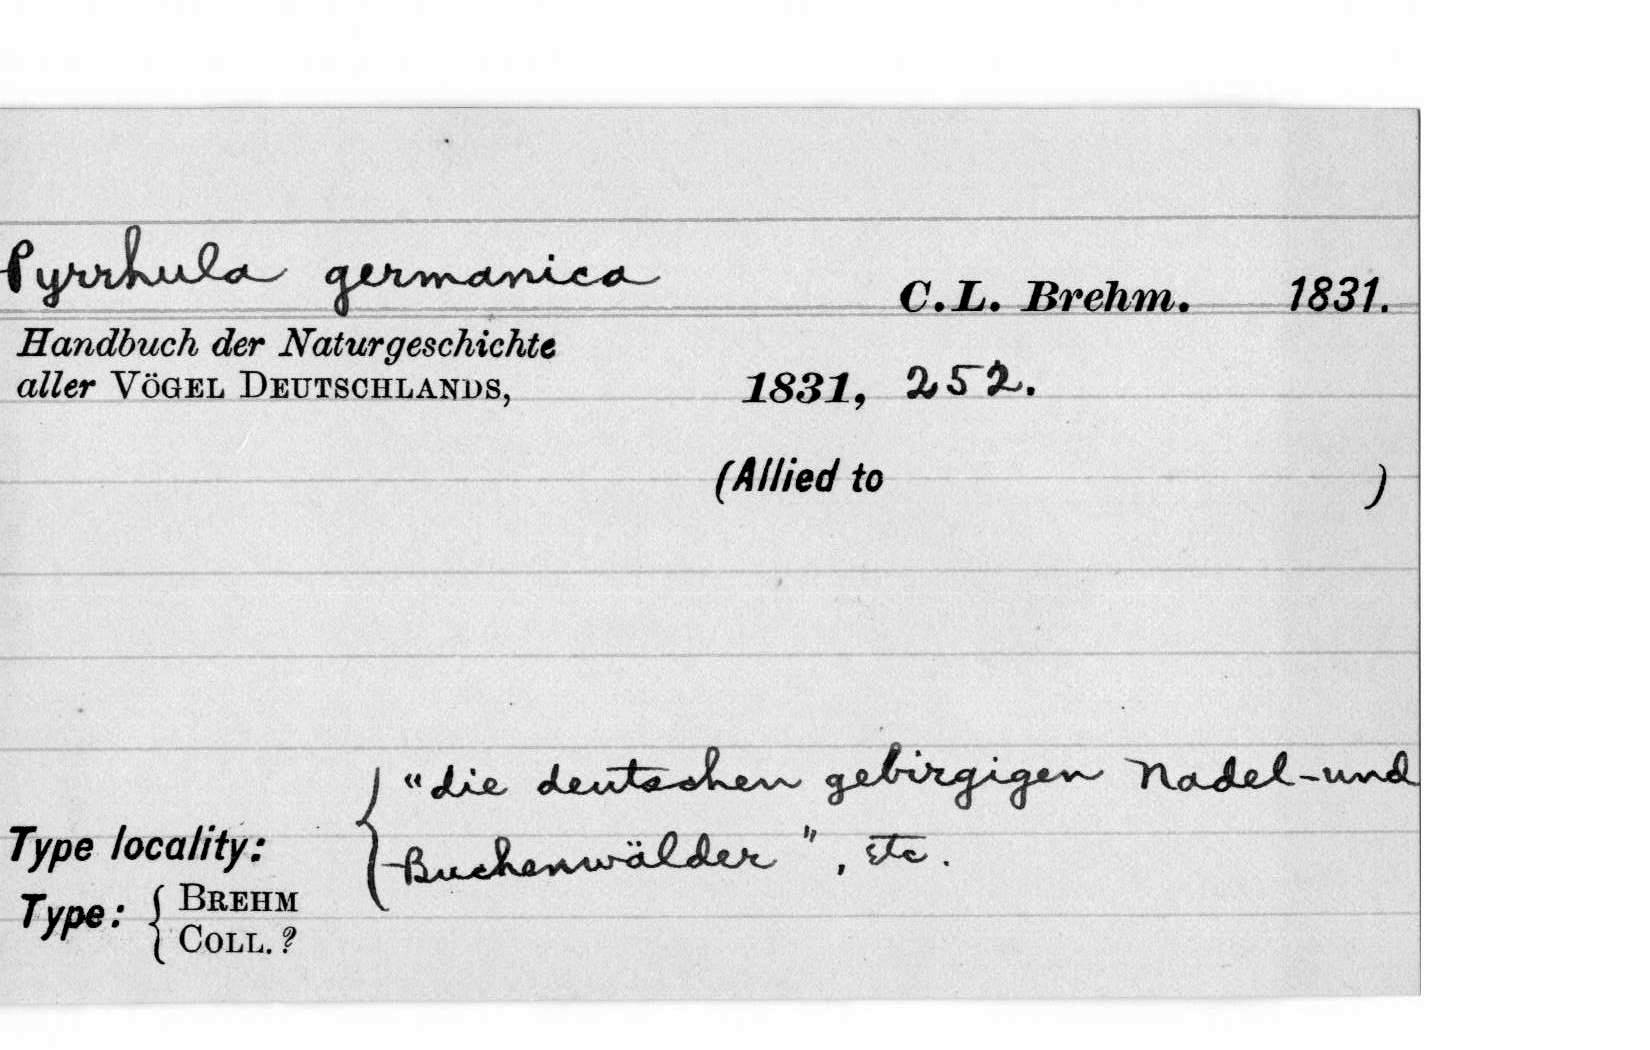 Pyrrhula germanica C.L. Brehm. 1831.
Handbuch der Naturgeschichte
aller VÖGEL DEUTSCHLANDS, 1831, 252.
(Allied to )
"die deutschen gebirgigen Nadel-und
Type locality: Buchenwälder", etc.
Type: BREHM
COLL. ?